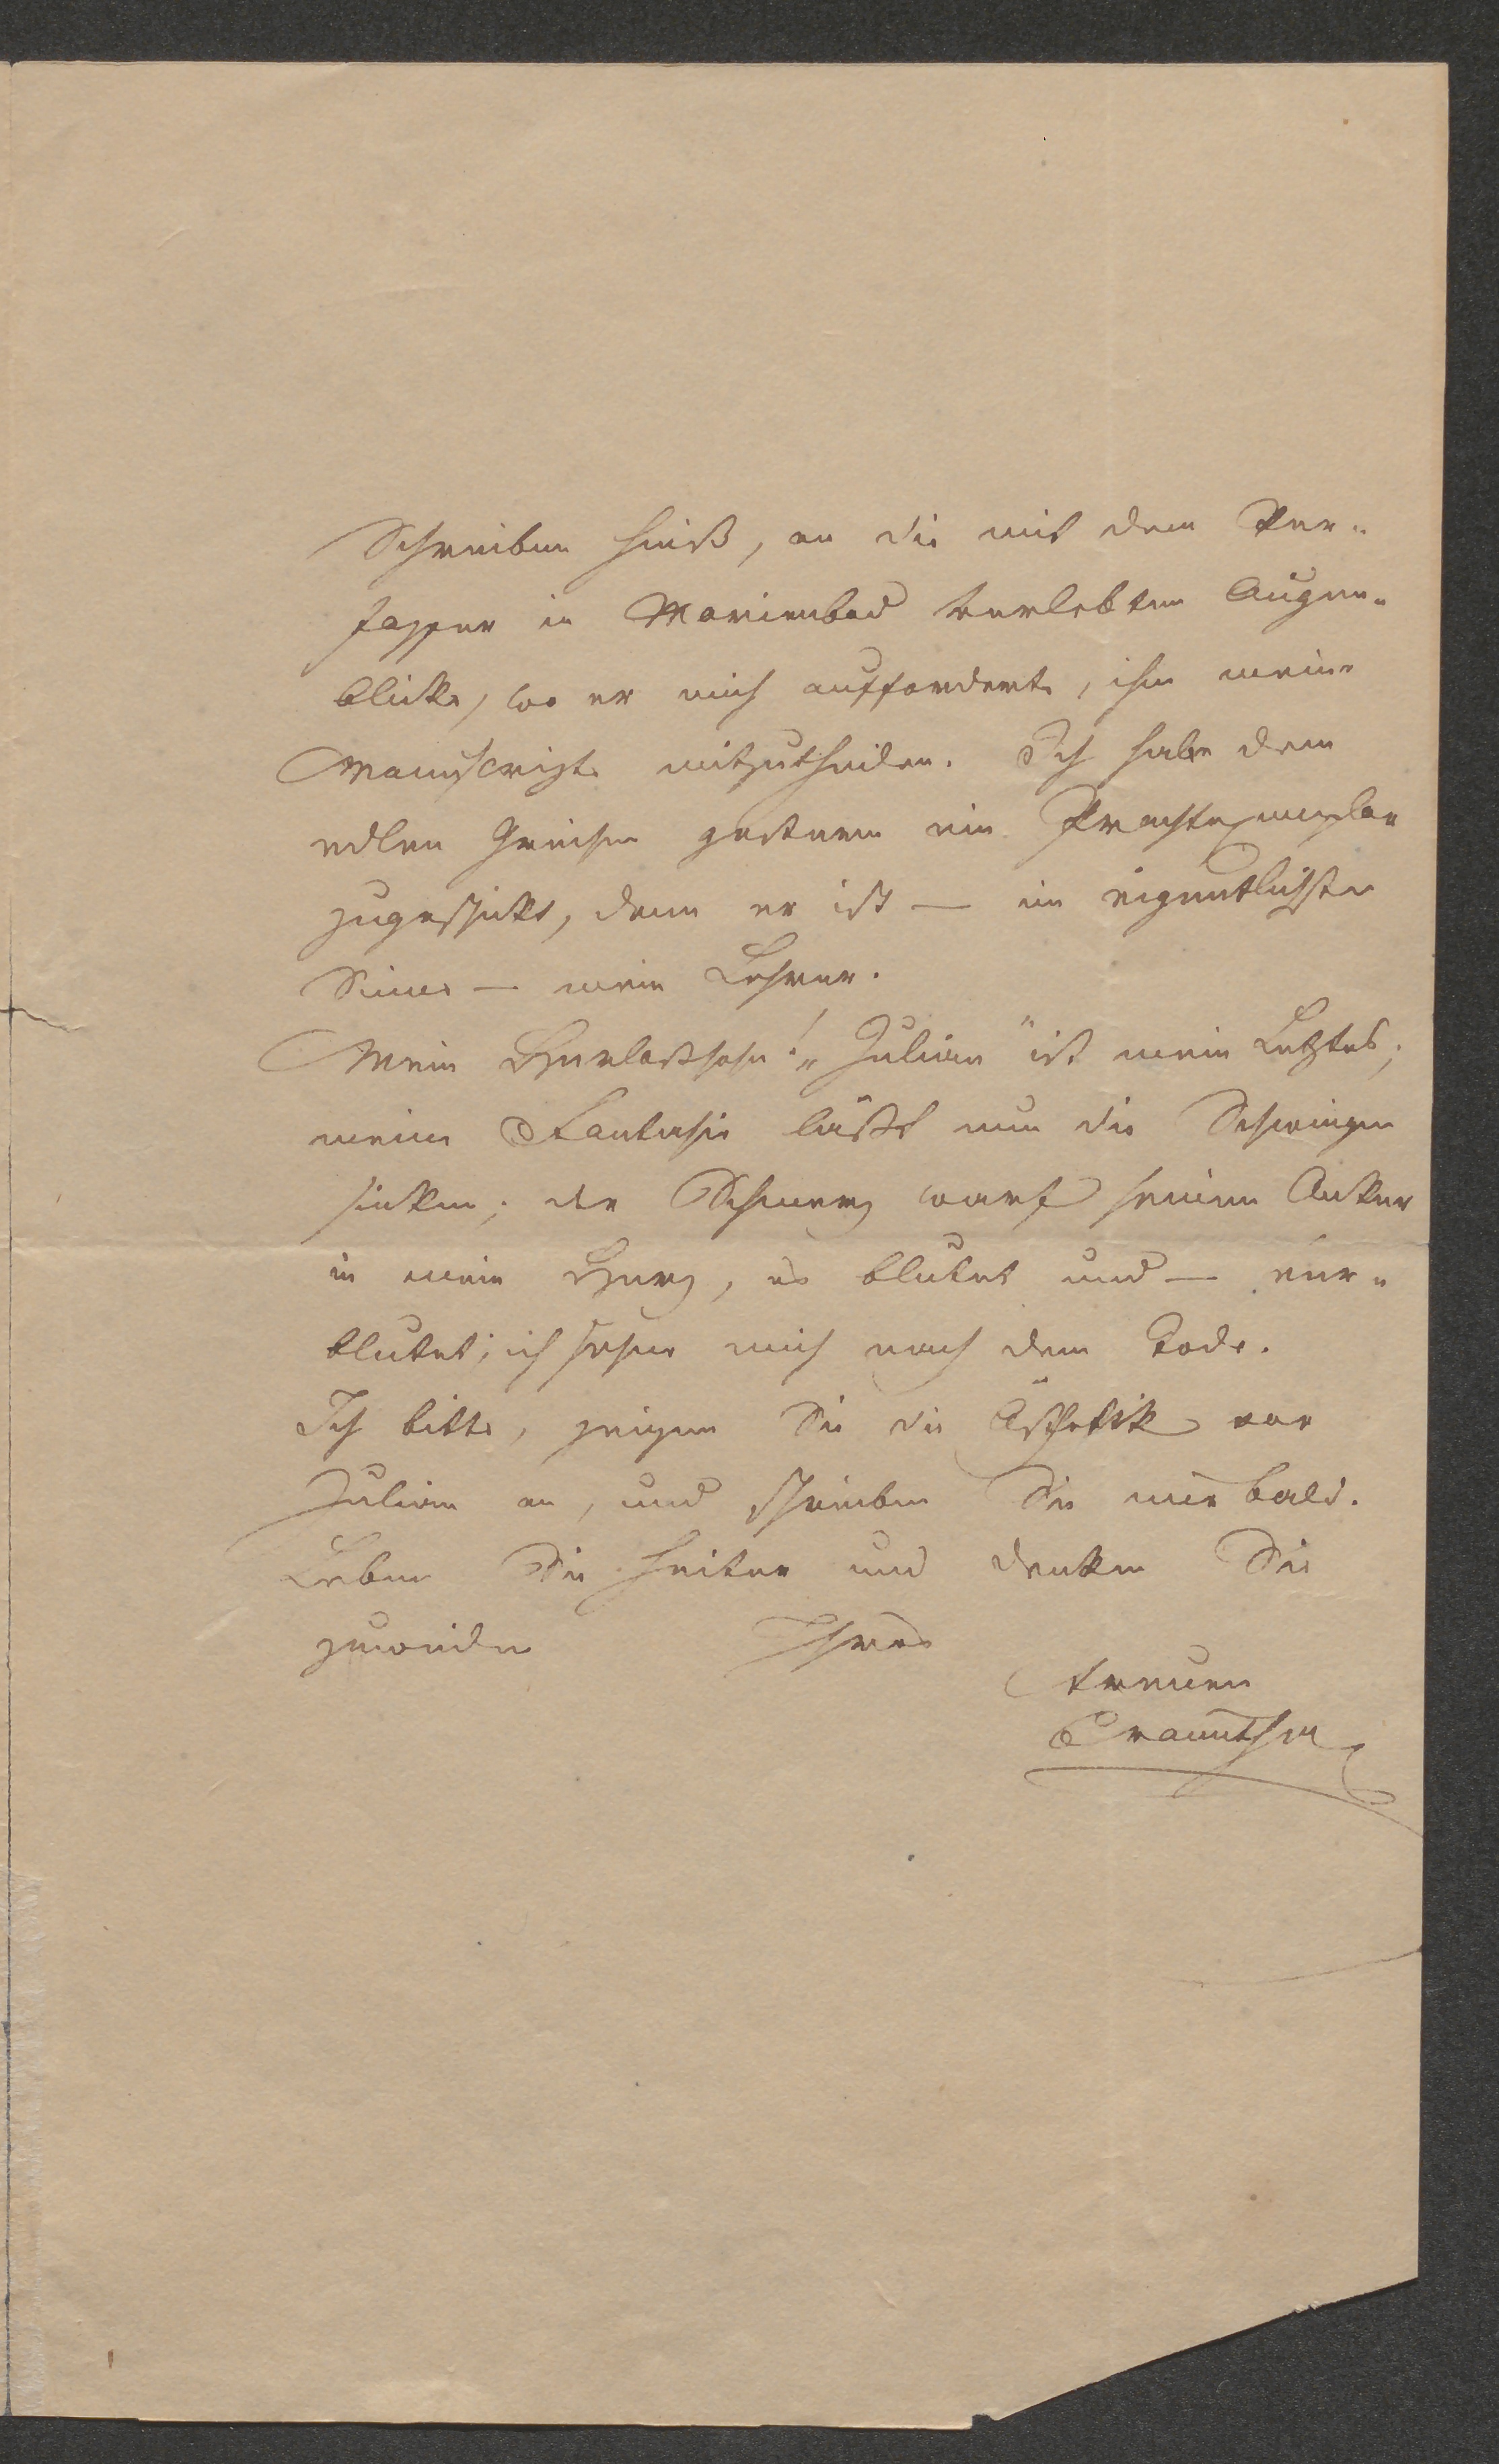 Schreiben hieß, an die mit dem Ver-
fasser in Marienbad verlebten Augen-
blicke, wo er mich aufforderte, ihm meine
Manuscripte mitzutheilen. Ich habe dem
edlen Greisen gestern ein Prachtexemplar
zugeschickt, denn er ist — im eigentlichsten
Sinne — mein Lehrer.
Mein Herloßsohn! „Julian" ist mein Letztes;
meine Fantasie läßt nun die Schwingen
sinken; der Schmerz warf seinen Anker
in mein Herz, es blutet und — ver-
blutet; ich sehne mich nach dem Tode.
Ich bitte, zeigen Sie die Ästhetik vor
Julian an, und schreiben Sie mir bald.
Leben Sie heiter und denken Sie
zuweilen Ihres
treuen